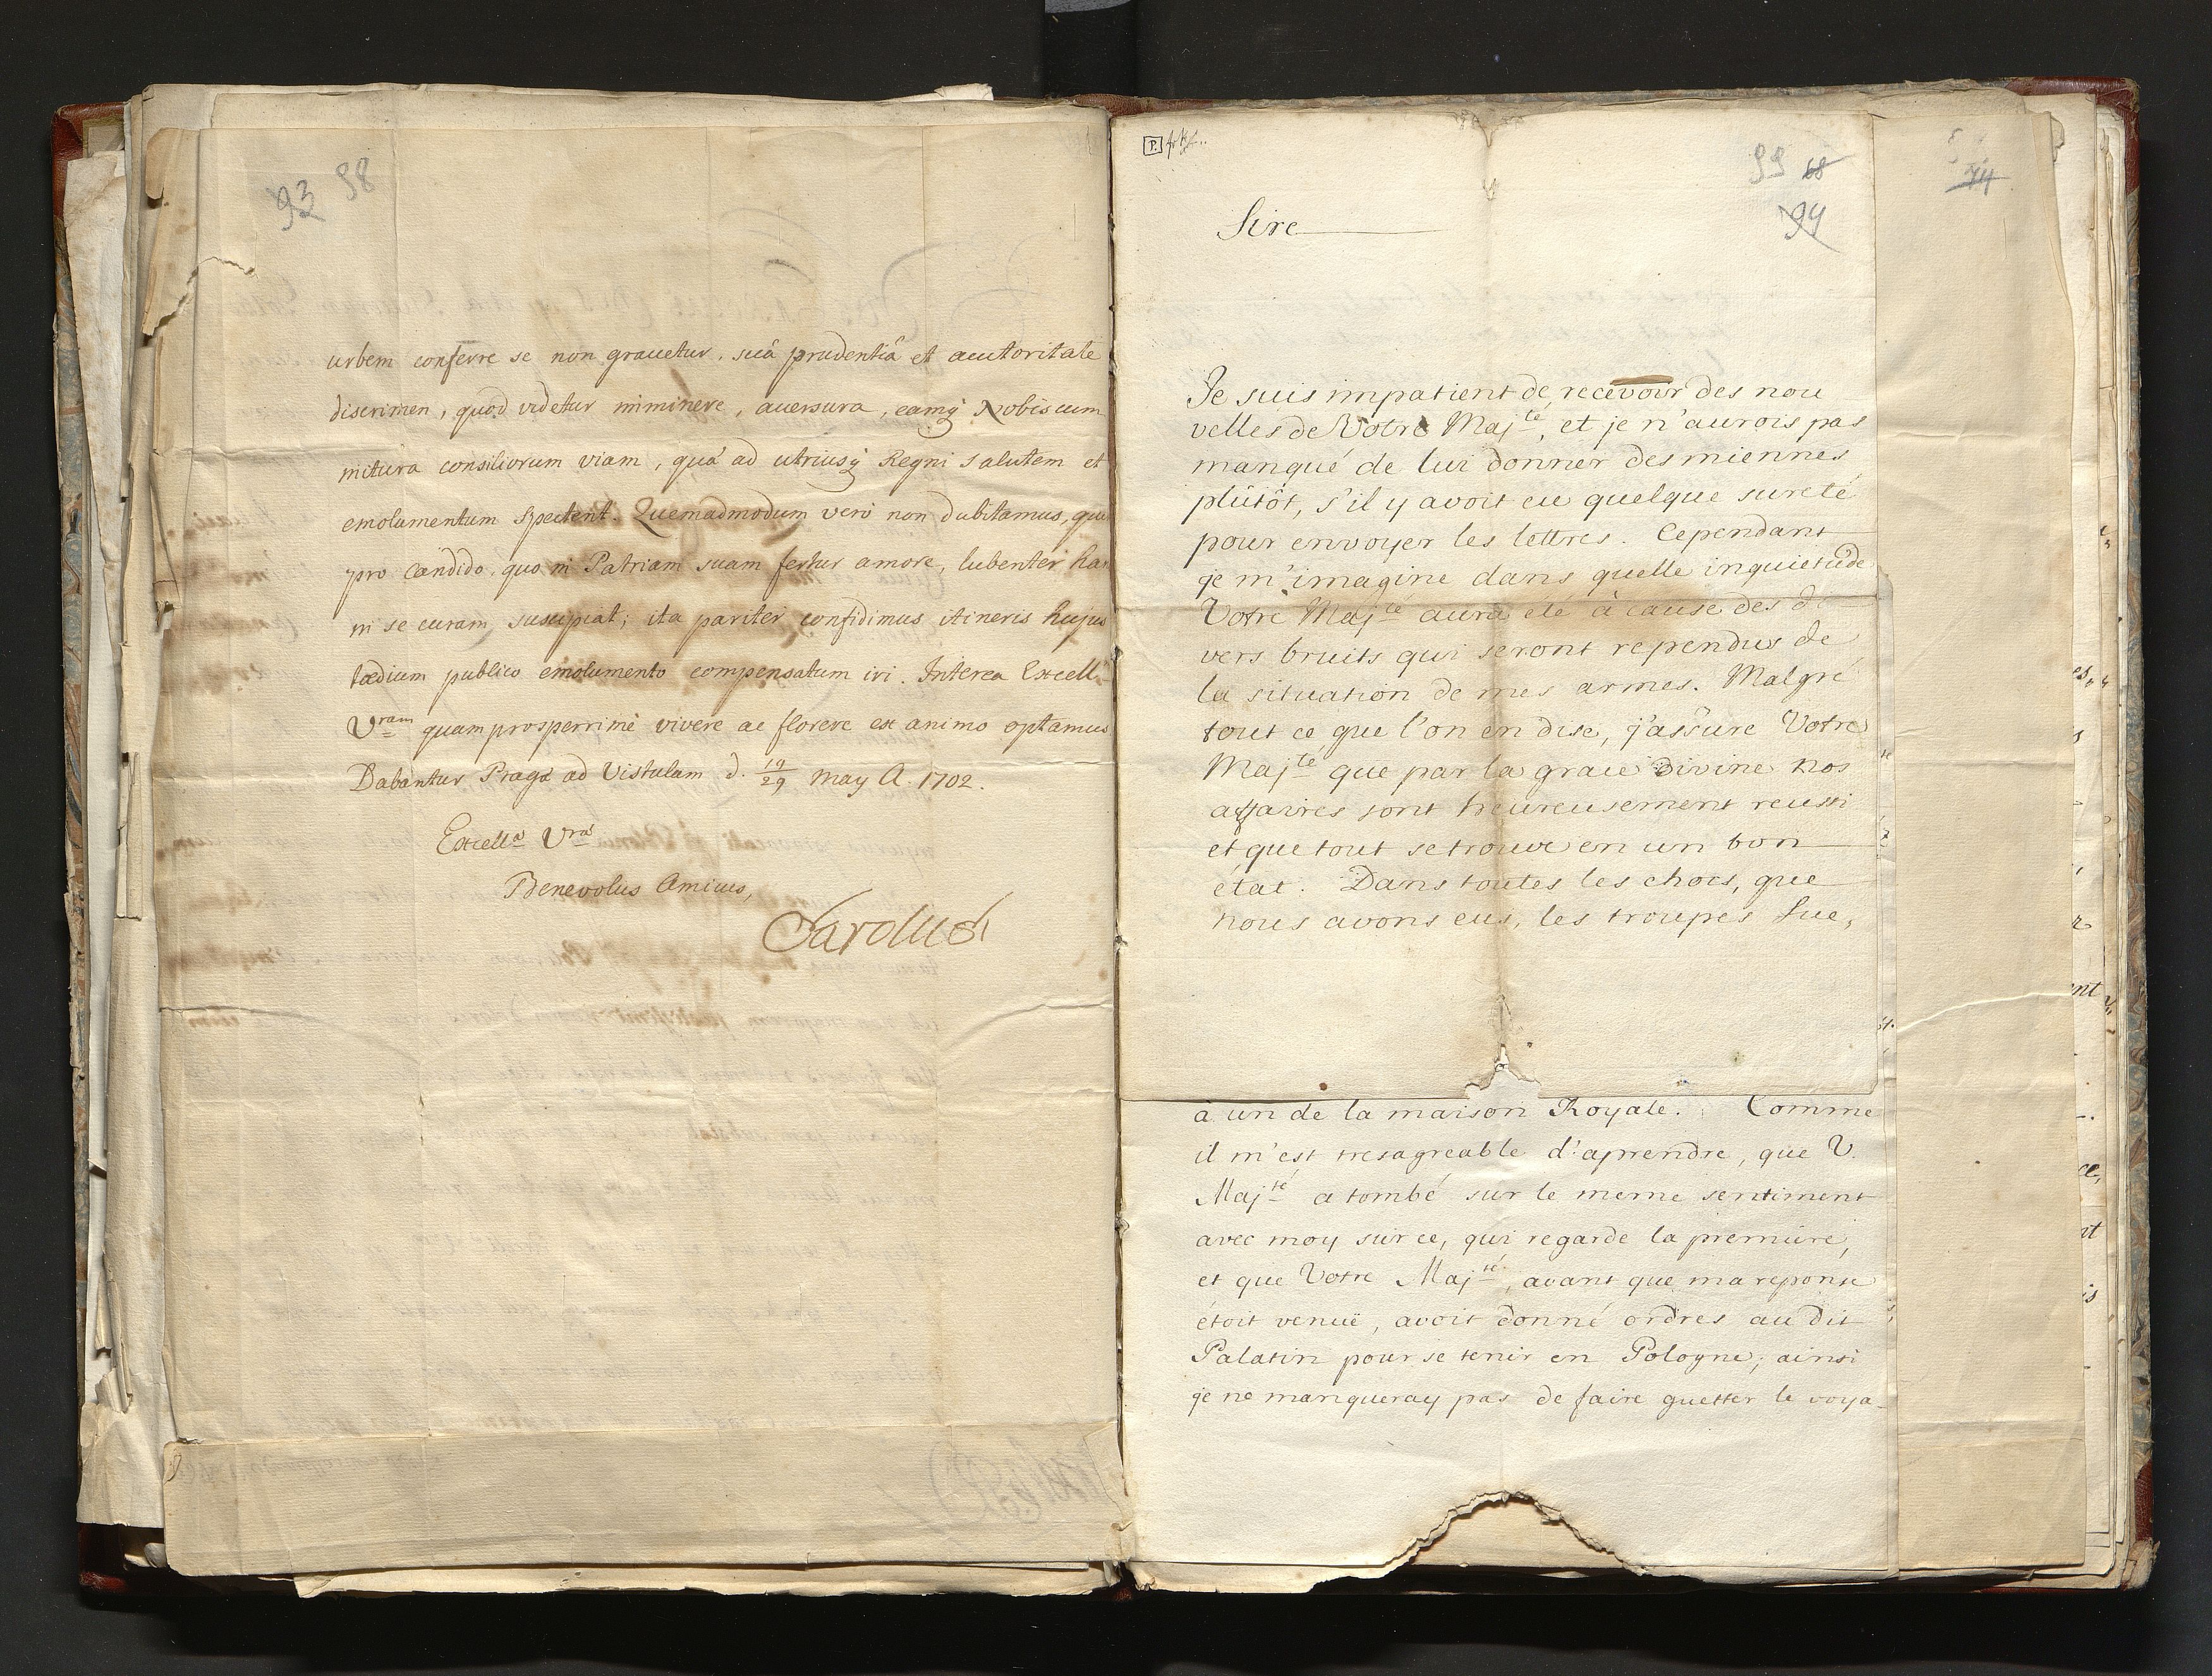 93 98
urbem conferre se non grauetur, suâ prudentiâ et autoritate
discrimen, quod videtur imminere, auersura, eamq Nobiscum
initura consiliorum viam, quâ ad utriusq Regni salutem et
emolumentum spectent. Quemadmodum verò non dubitamus,
pro candido, quo in Patriam suam fertur amore, lubenter
in se curam suscipiat; ita pariter confidimus itineris hujus
tœdium publico emolumento compensatum iri. Interea Excell
Vram quam prosperrimè vivere ac florere ex animo optamus
Dabantur Pragæ ad Vistulam d. 19/29 May A. 1702.
Excellæ Vræ
Benevolus Amicus,
Carolus
99 68
94
Sire
Je suis impatient de recevoir des nou
velles de Votre Majté, et je n'aurois pas
manqué de lui donner des miennes
plûtôt, s'il y avoit eu quelque sureté
pour envoyer les lettres. Cependant
je m'imagine dans quelle inquietude
Votre Majté aura été à cause des di
vers bruits qui seront rependus de
la situation de mes armes. Malgré
tout ce que l'on en dise, j'assure Votre
Majté que par la grace divine nos
affaires sont heureusement reussi
et que tout se trouve en un bon
état. Dans toutes les chocs, que
nous avons eus, les troupes Sue,
à un de la maison Royale. Comme
il m'est tresagreable d'aprendre, que V.
Majté a tombé sur le meme sentiment
avec moy sur ce, qui regarde la premiere,
et que Votre Majté, avant que ma reponse
étoit venuë, avoit donné ordres au dit
Palatin pour se tenir en Pologne; ainsi
je ne manqueray pas de faire guetter le voya-
74